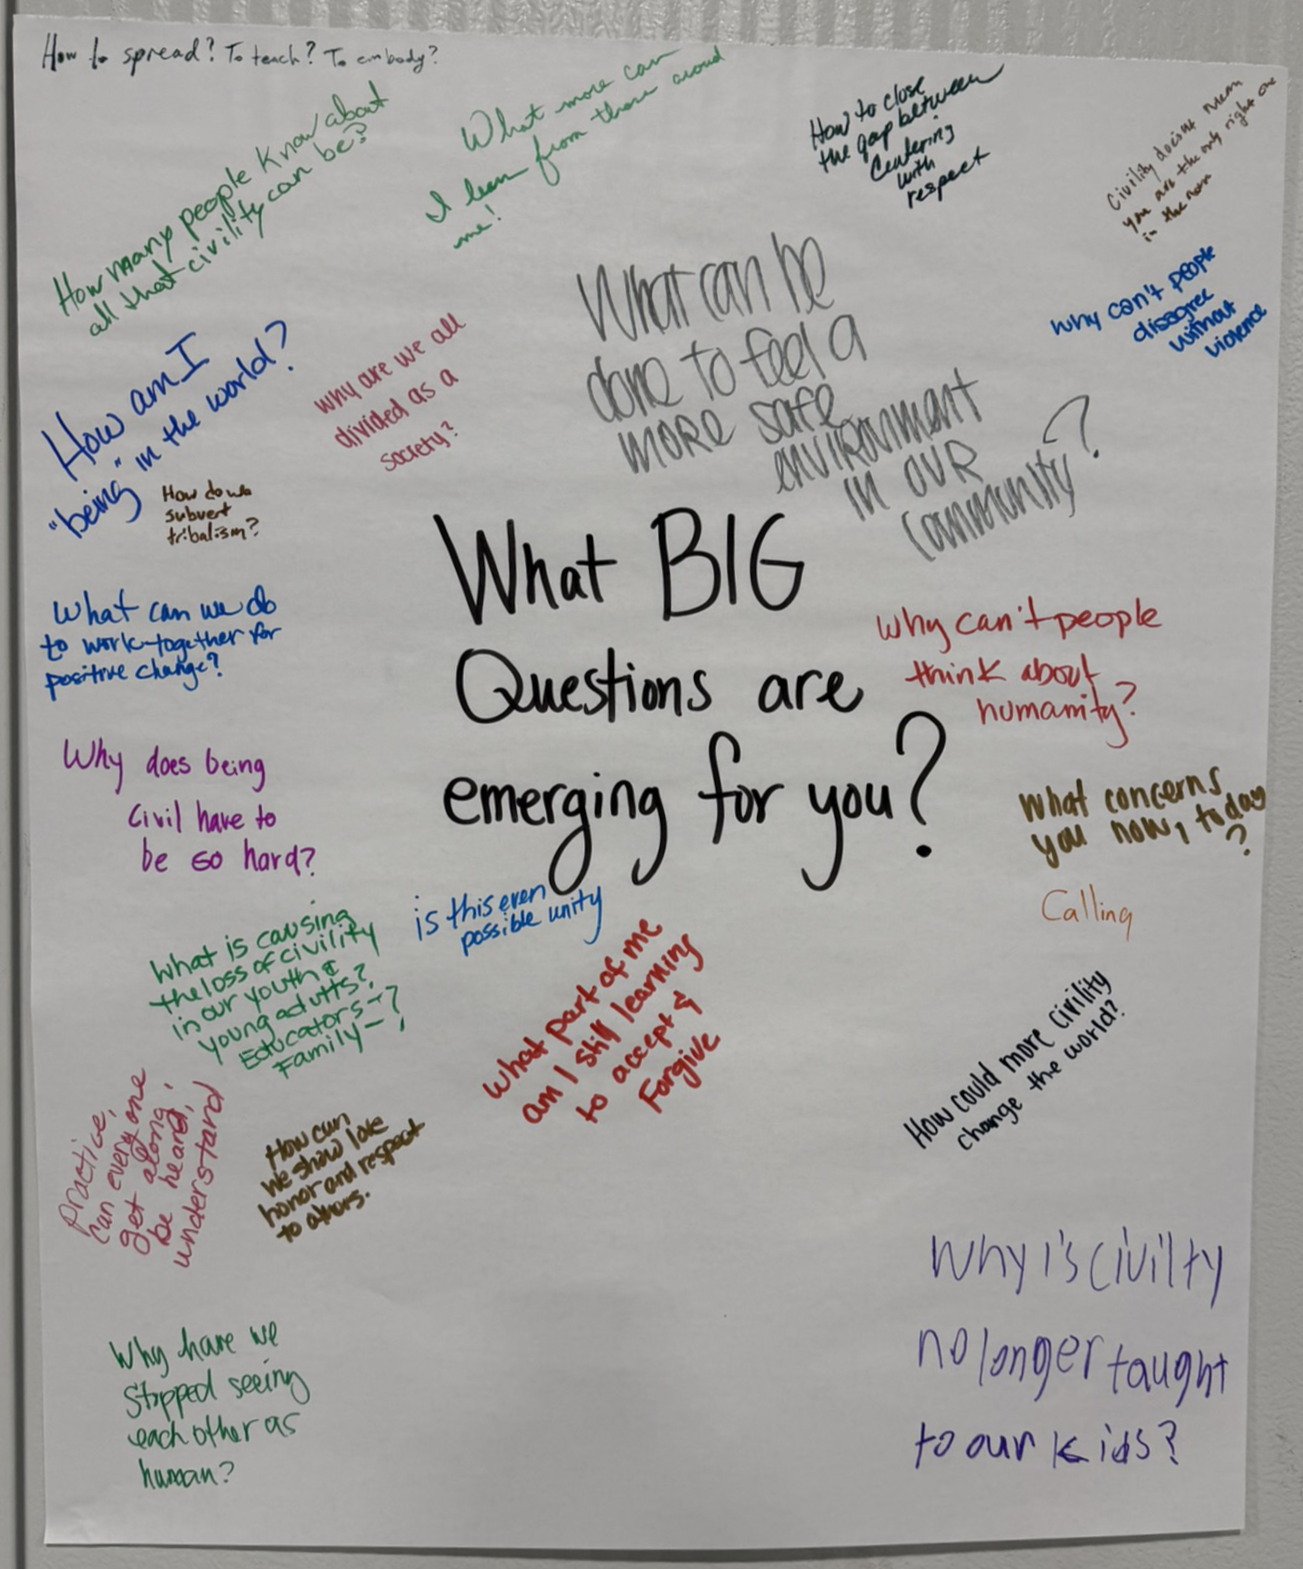 How to spread? To teach? To embody?
How many people know about
all that civility can be?
What more can
I learn from those around
me!
How to close
the gap between
Centering
with
respect
Civility doesnt mean
you are the only right one
in the room
Why can't people
disagree
without
violence
How am I
"being" in the world?
why are we all
divided as a
society?
What can be
done to feel a
more safe
environment
in our
community?
How do we
subvert
tribalism?
What can we do
to work together for
positive change?
What BIG
Questions are
emerging for you?
why can't people
think about
humanity?
Why does being
Civil have to
be so hard?
What concerns
you now, today
?
Calling
is this even
possible unity
What is causing
the loss of civility
in our youth &
young adults?
Educators-?
Family-?
What part of me
am I still learning
to accept &
Forgive
How could more civility
change the world?
Practice,
can everyone
get along,
be heard,
understand
How can
we show love
honor and respect
to others.
Why is civilty
no longer taught
to our kids?
Why have we
stopped seeing
each other as
human?